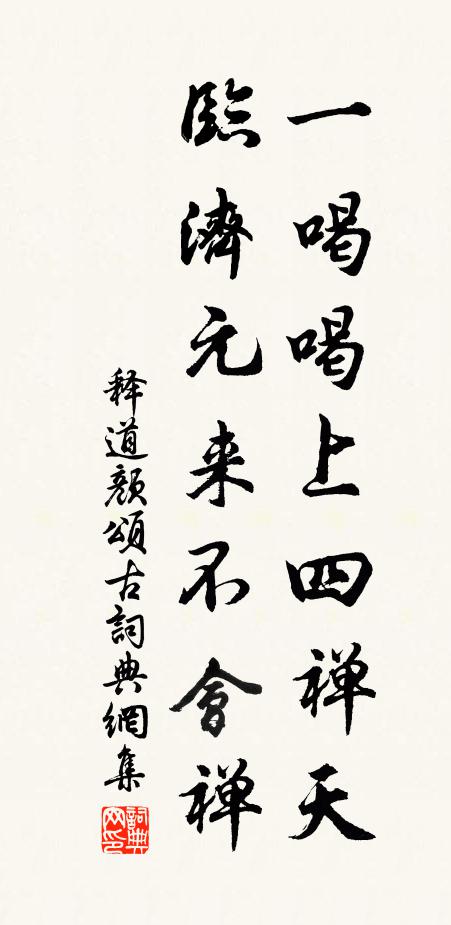 一喝喝上四禅天
臨濟元来不會禅
释道顏頌古詞典網集
詞典网印